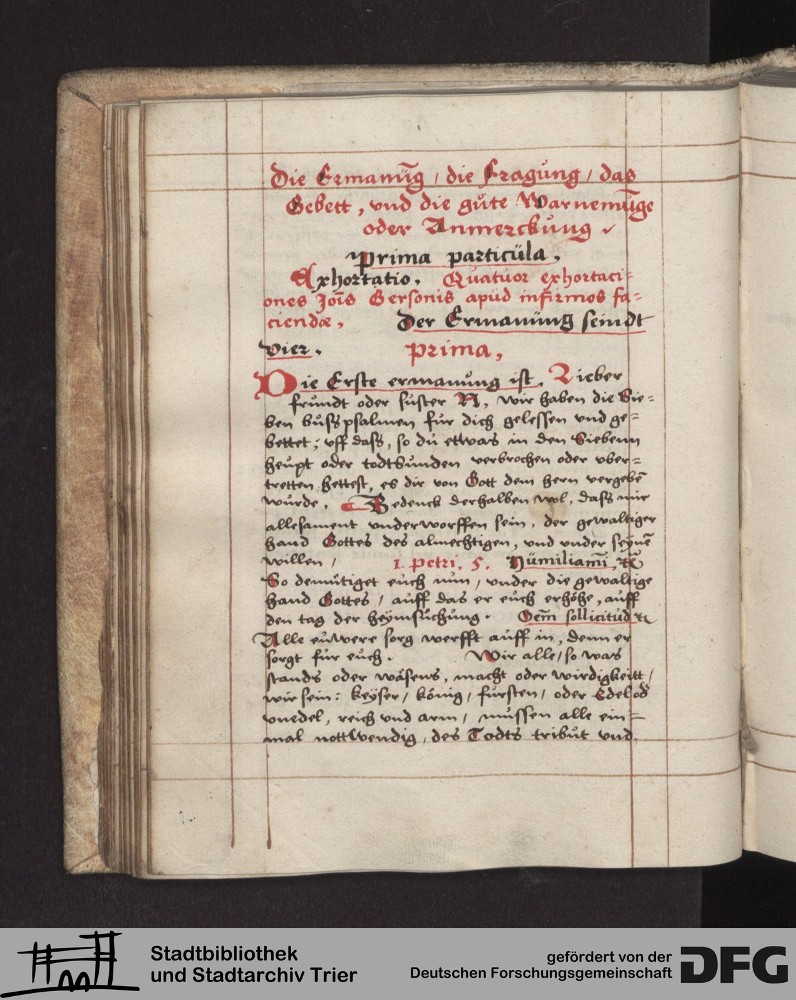 Die Ermanu̅g / die Fragung / das
Gebett, vnd die gute Warnemu̅ge
oder Anmerckung
Prima particula.
Exhortatio. Quatuor exhortaci-
ones Joīs Gersonis apud infirmos fa-
ciendæ. Der Ermanung seindt
vier. Prima,
Die Erste ermanung ist. Lieber
frundt oder suster N, wir haben die Sie-
ben busspsalmen fur dich gelessen vnd ge-
bettet; vff dass, so du etwas in den Siebenn
heupt oder todtsunden verbrochen oder vber-
tretten hettest, es dir von Gott dem hern vergebē
wurde. Bedenck derhalben wol, dass mir
allesament vnderworffen sein, der gewaltiger
hand Gottes des almechtigen, vnd vnder seynē
willen / 1. Petri. 5. Humiliamī, &c
So demutiget euch nun, vnder die gewaltige
hand Gottes / auff das er euch erhöhe, auff
den tag der heymsuchung. Oem̄ sollicitud &c
Alle euwere sorg werfft auff in, denn er
sorgt fur euch. Wir alle / so was
stands oder wäsens, macht oder wirdigkeitt /
wir sein: keyser / könig / fursten / oder Edel od
vnedel, reich vnd arm, mussen alle ein-
mal nottwendig, des Todts tribut vnd
Stadtbibliothek
und Stadtarchiv Trier
gefördert von der
Deutschen Forschungsgemeinschaft
DFG